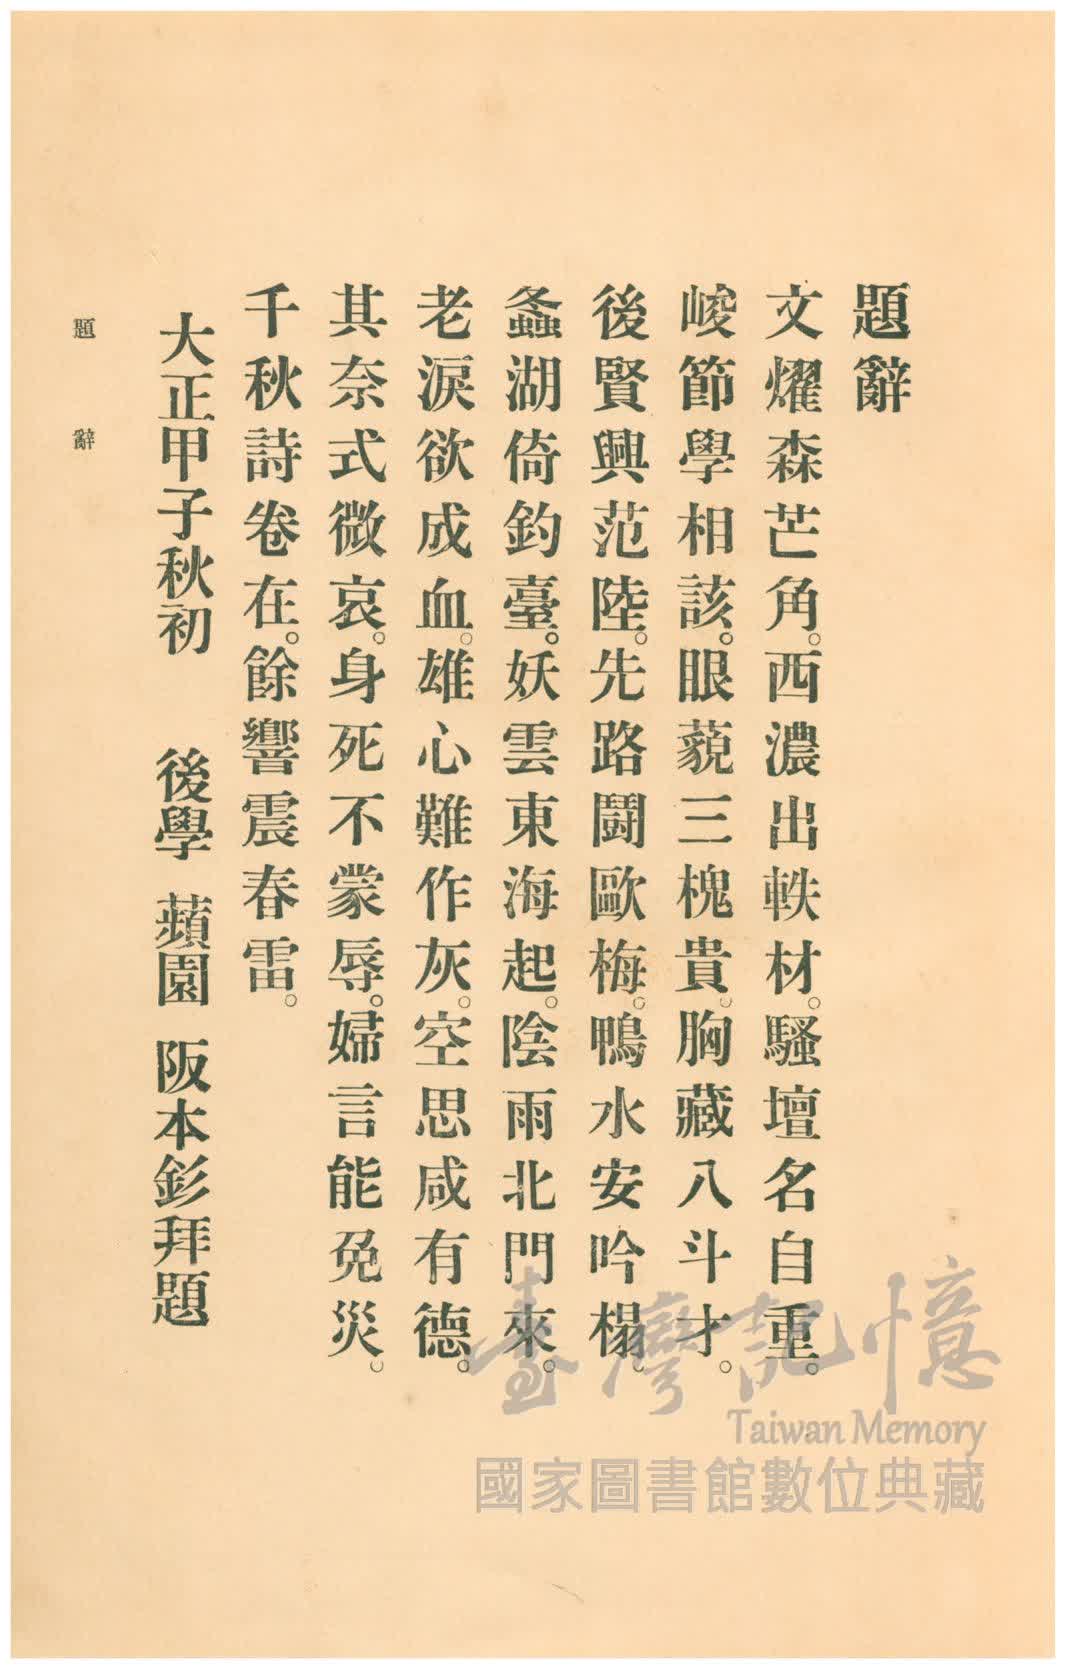 題辭
文燿森芒角。西濃出軼材。騷壇名自重。
峻節學相該。眼藐三槐貴。胸藏八斗才。
後賢興范陸。先路闢歐梅。鴨水安吟榻。
蠡湖倚釣臺。妖雲東海起。陰雨北門來。
老淚欲成血。雄心難作灰。空思咸有德。
其奈式微哀。身死不蒙辱。婦言能免災。
千秋詩卷在。餘響震春雷。
大正甲子秋初　後學 蘋園 阪本釤拜題
題辭
臺灣記憶
Taiwan Memory
國家圖書館數位典藏